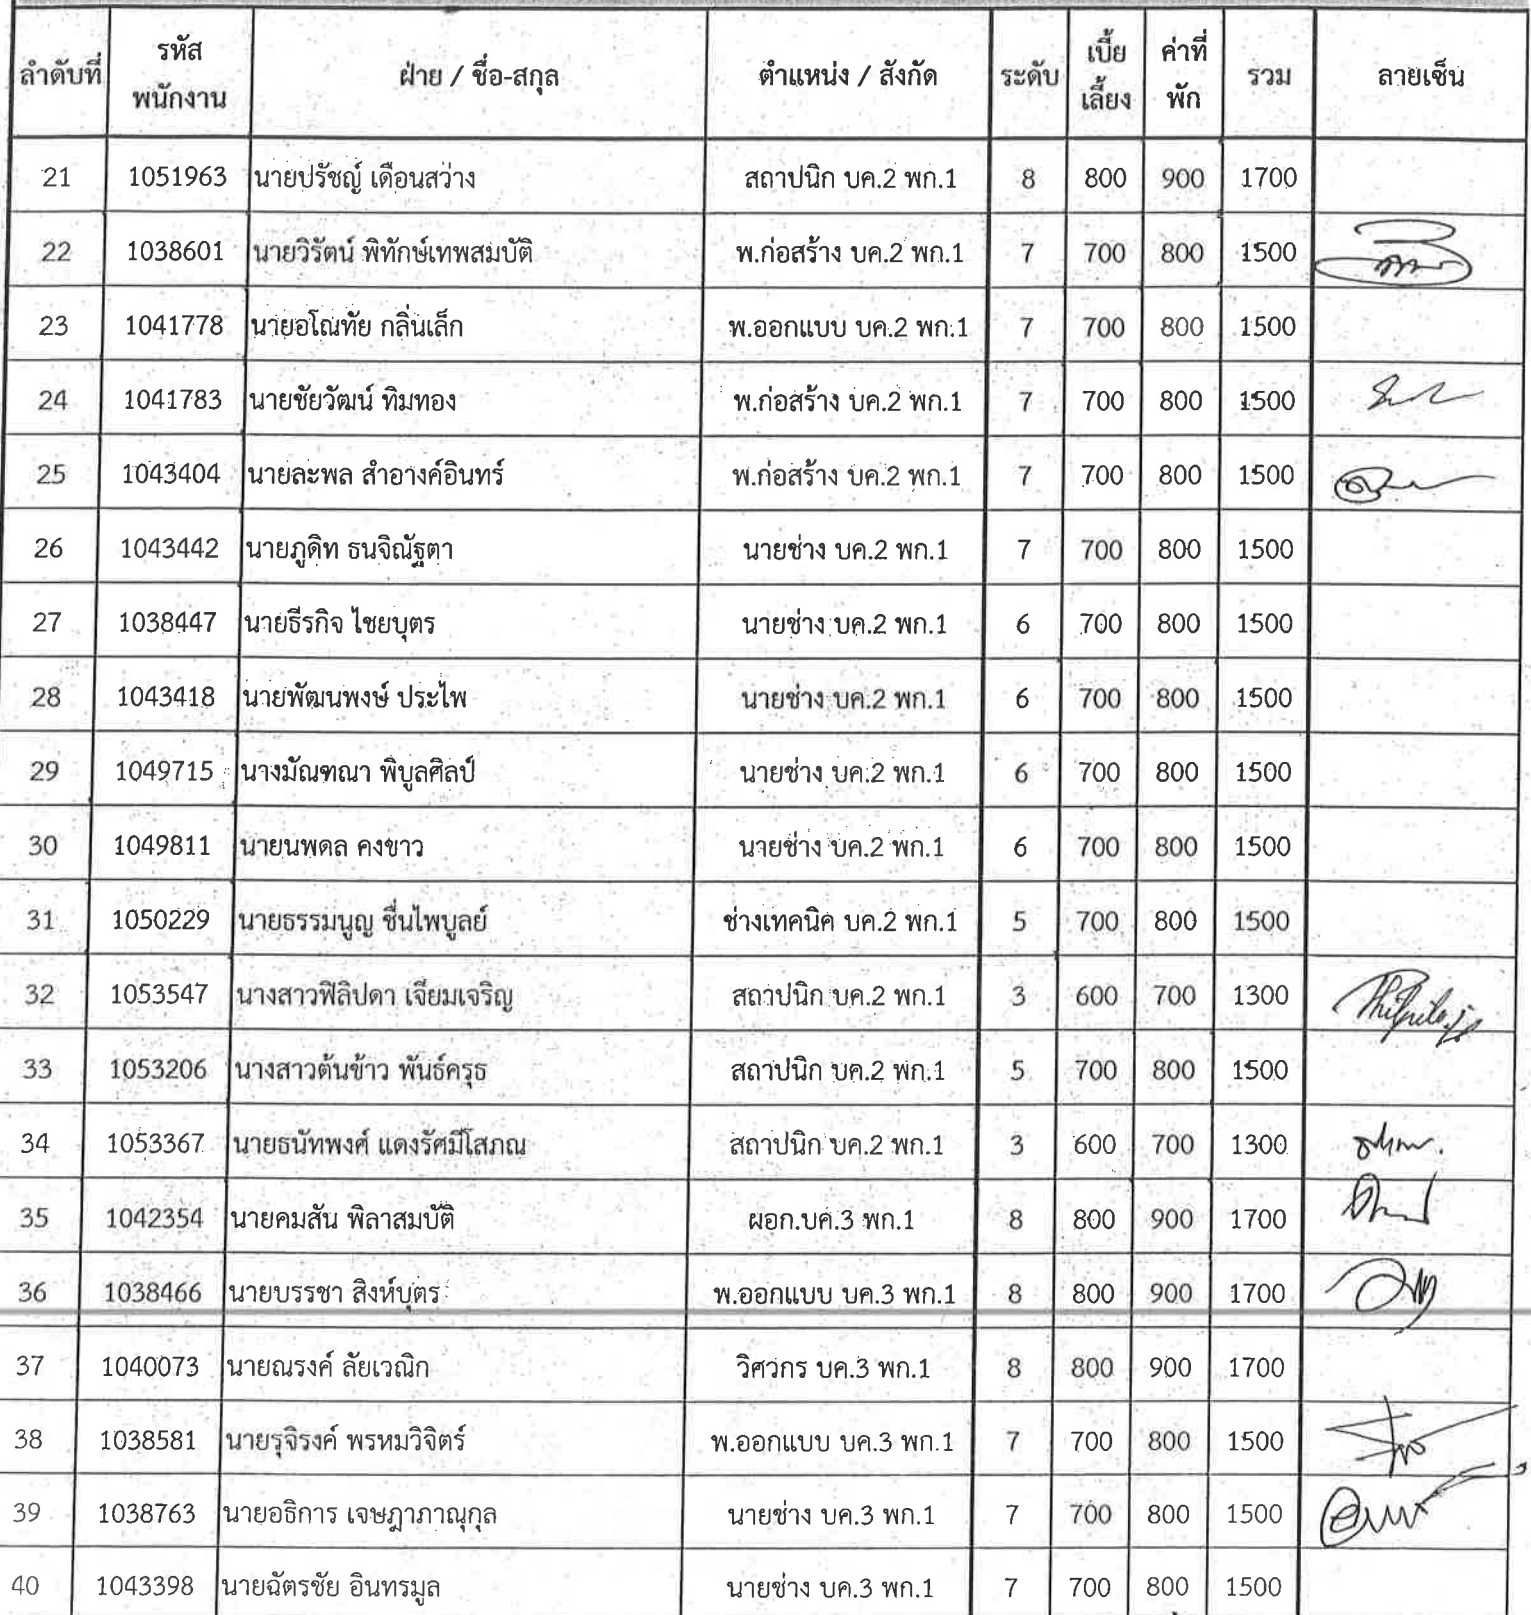 ลำดับที่ รหัสพนักงาน ฝ่าย / ชื่อ-สกุล ตำแหน่ง / สังกัด ระดับ เบี้ยเลี้ยง ค่าที่พัก รวม ลายเซ็น
21 1051963 นายปรัชญ์ เดือนสว่าง สถาปนิก บค.2 พก.1 8 800 900 1700
22 1038601 นายวิรัตน์ พิทักษ์เทพสมบัติ พ.ก่อสร้าง บค.2 พก.1 7 700 800 1500
23 1041778 นายอโณทัย กลิ่นเล็ก พ.ออกแบบ บค.2 พก.1 7 700 800 1500
24 1041783 นายชัยวัฒน์ ทิมทอง พ.ก่อสร้าง บค.2 พก.1 7 700 800 1500
25 1043404 นายละพล สำอางค์อินทร์ พ.ก่อสร้าง บค.2 พก.1 7 700 800 1500
26 1043442 นายภูดิท ธนจิณัฐตา นายช่าง บค.2 พก.1 7 700 800 1500
27 1038447 นายธีรกิจ ไชยบุตร นายช่าง บค.2 พก.1 6 700 800 1500
28 1043418 นายพัฒนพงษ์ ประไพ นายช่าง บค.2 พก.1 6 700 800 1500
29 1049715 นางมัณฑณา พิบูลศิลป์ นายช่าง บค.2 พก.1 6 700 800 1500
30 1049811 นายนพดล คงขาว นายช่าง บค.2 พก.1 6 700 800 1500
31 1050229 นายธรรมนูญ ชื่นไพบูลย์ ช่างเทคนิค บค.2 พก.1 5 700 800 1500
32 1053547 นางสาวฟิลิปดา เจียมเจริญ สถาปนิก บค.2 พก.1 3 600 700 1300
33 1053206 นางสาวต้นข้าว พันธ์ครุธ สถาปนิก บค.2 พก.1 5 700 800 1500
34 1053367 นายธนัทพงศ์ แดงรัศมีโสภณ สถาปนิก บค.2 พก.1 3 600 700 1300
35 1042354 นายคมสัน พิลาสมบัติ ผอก.บค.3 พก.1 8 800 900 1700
36 1038466 นายบรรชา สิงห์บุตร พ.ออกแบบ บค.3 พก.1 8 800 900 1700
37 1040073 นายณรงค์ ลัยเวณิก วิศวกร บค.3 พก.1 8 800 900 1700
38 1038581 นายรุจิรงค์ พรหมวิจิตร์ พ.ออกแบบ บค.3 พก.1 7 700 800 1500
39 1038763 นายอธิการ เจษฎาภาณุกุล นายช่าง บค.3 พก.1 7 700 800 1500
40 1043398 นายฉัตรชัย อินทรมูล นายช่าง บค.3 พก.1 7 700 800 1500